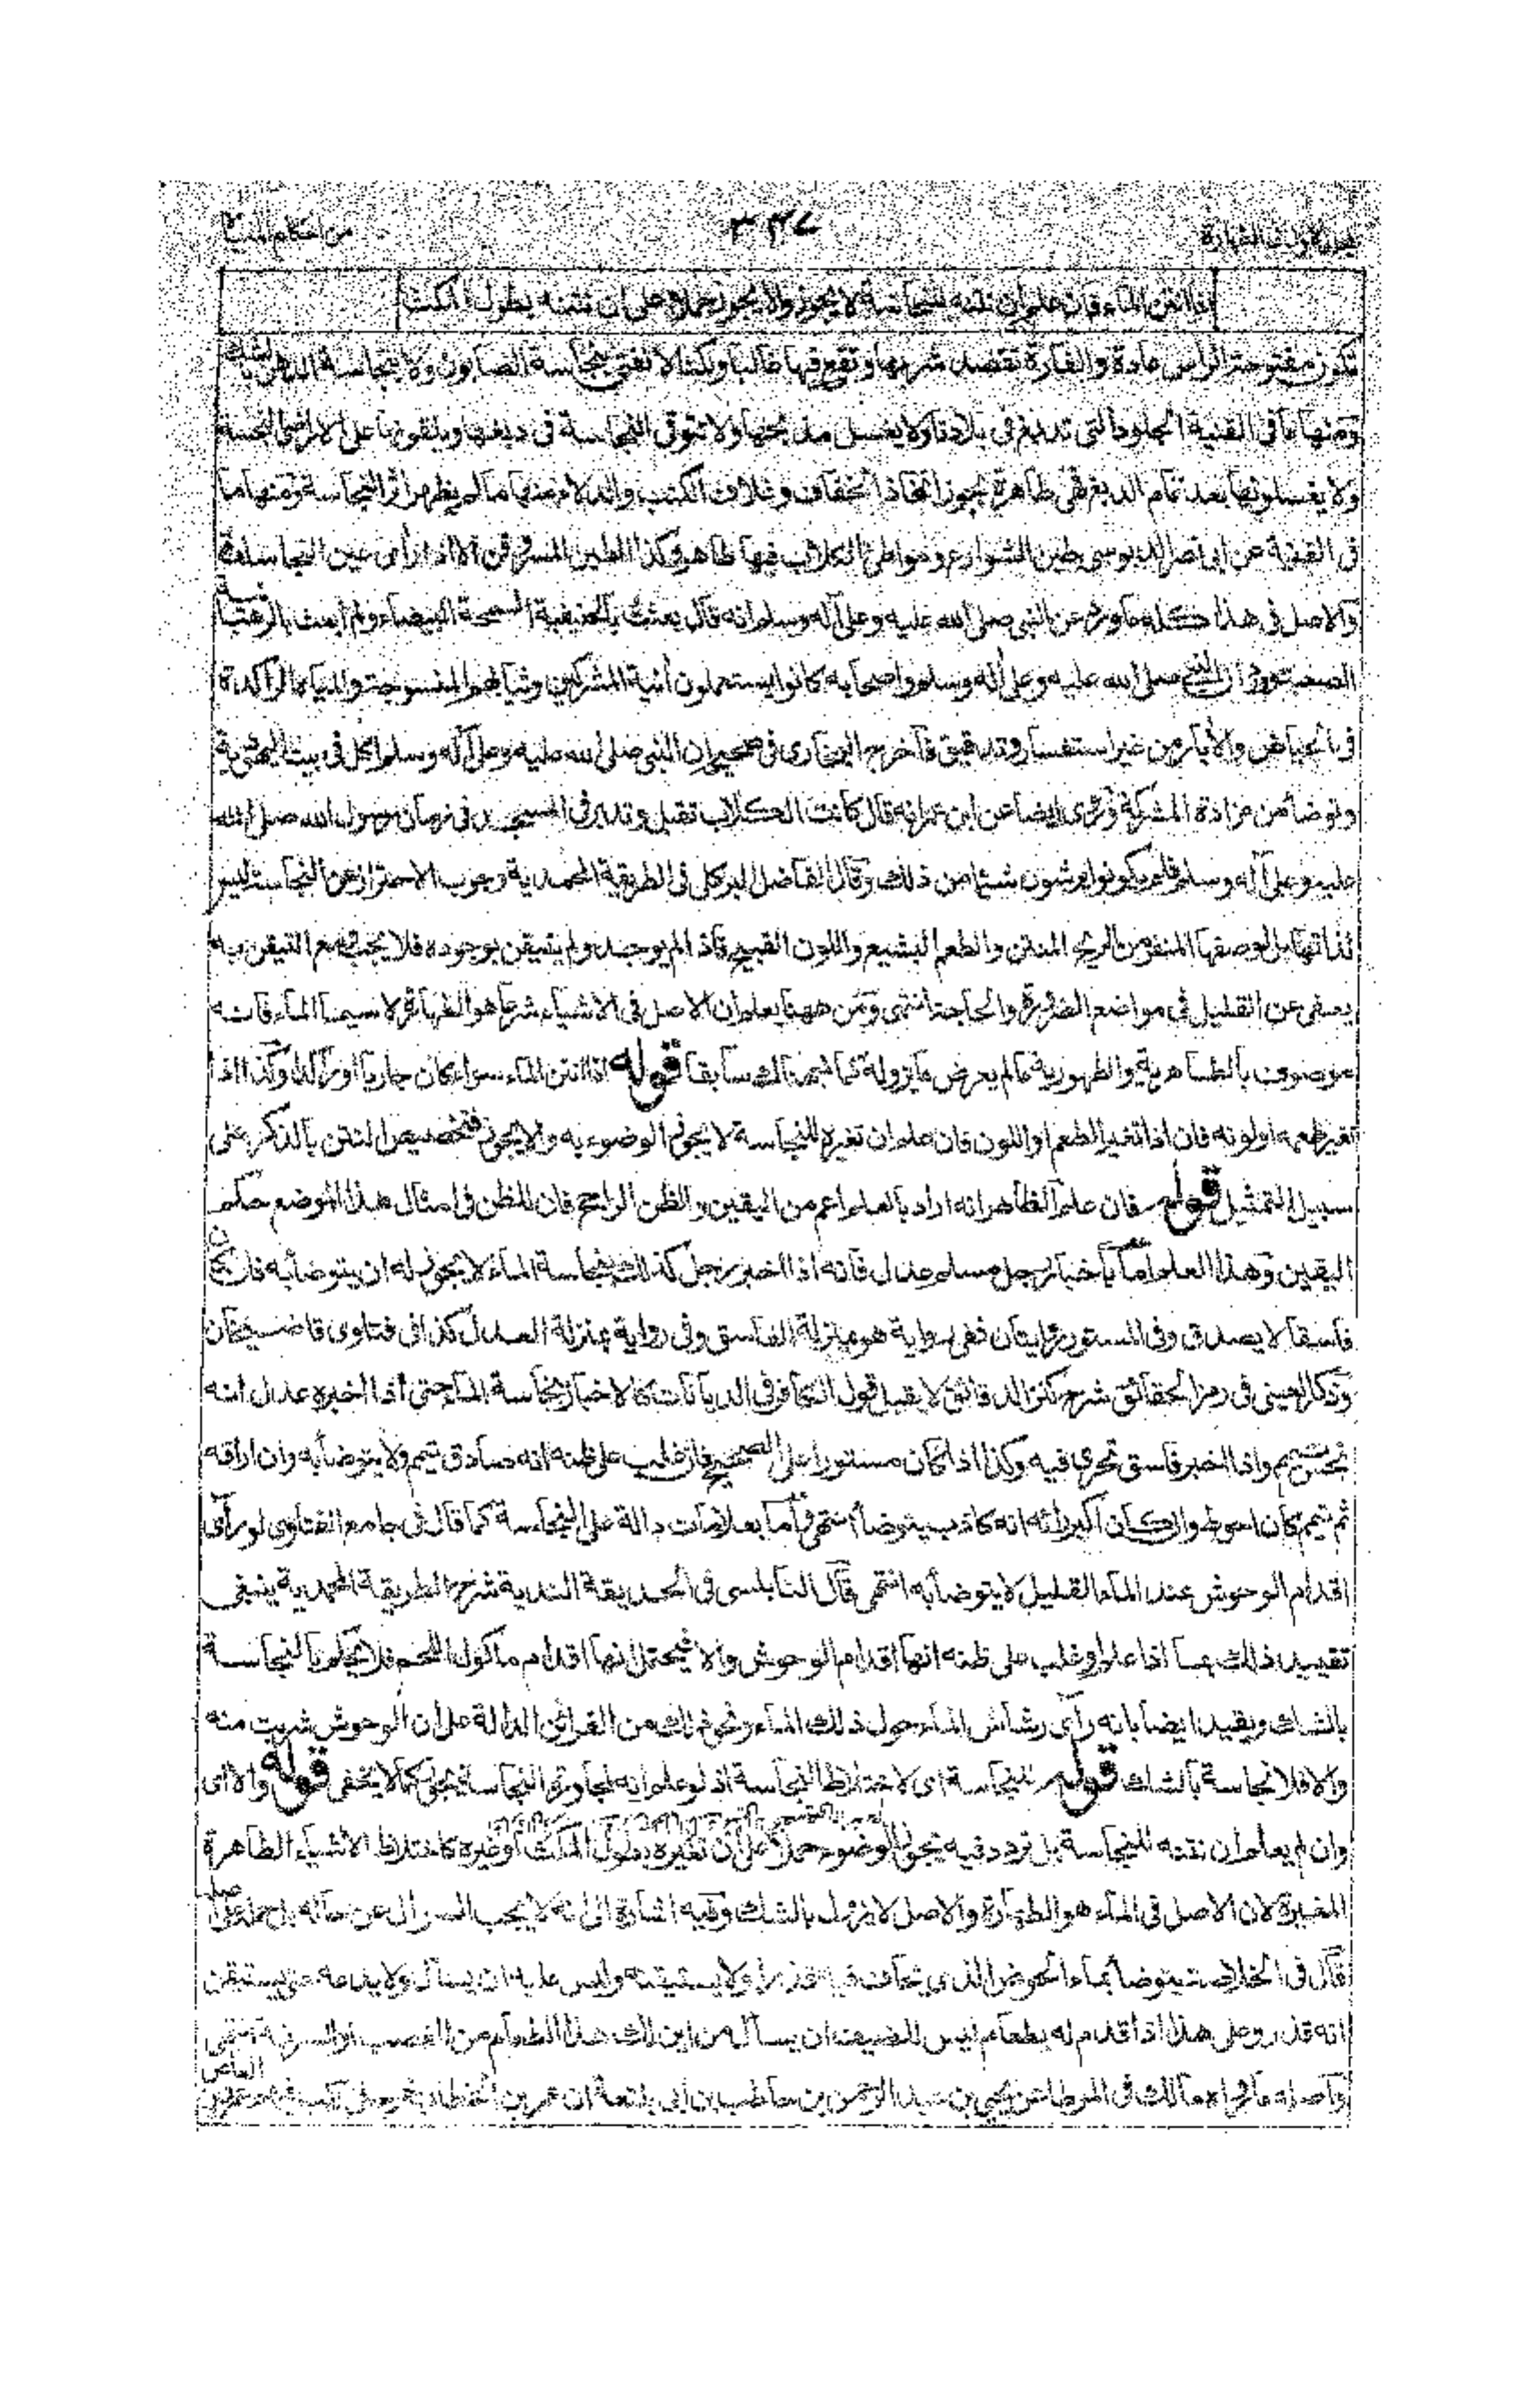 من احكام المياه
اذا انتن الماء فان علم ان نتنه لنجاسة لا يجوز والا يجوز حملا على ان نتنه بطول المكث
تكون مفتوحة الراس عادة والفارة تقصد شربها وتقع فيها غالبا ولكنا لا نفتي بنجاسة الصابون ولا بنجاسة الدهن بالشك
ومنها ما في القنية الجلود التي تدبغ في بلادنا ولا يغسل مذبحها ولا تتوقى النجاسة في دبغها ويلقونها على الارض النجسة
ولا يغسلونها بعد تمام الدبغ فهي طاهرة يجوز اتخاذ الخفاف وغلاف الكتب والدلاء منها ما لم يظهر اثر النجاسة ومنها ما
في القنية عن ابي نصر الدبوسي طين الشوارع ومواطئ الكلاب فيها طاهر وكذا الطين المسرقن الا اذا رأى عين النجاسة
والاصل في هذا كله ما ورد عن النبي صلى الله عليه وعلى آله وسلم انه قال بعثت بالحنيفية السمحة البيضاء ولم ابعث بالرهبانية
الصعبة وورد ان النبي صلى الله عليه وعلى آله وسلم واصحابه كانوا يستعملون آنية المشركين وثيابهم المنسوجة والمياه الراكدة
في الحياض والآبار من غير استفسار وتدقيق فاخرج البخاري في صحيحه ان النبي صلى الله عليه وعلى آله وسلم اكل في بيت اليهودية
وتوضأ من مزادة المشركة وروى ايضا عن ابن عمر انه قال كانت الكلاب تقبل وتدبر في المسجد في زمان رسول الله صلى الله
عليه وعلى آله وسلم فلم يكونوا يرشون شيئا من ذلك وقال الفاضل البركلي في الطريقة المحمدية وجوب الاحتراز عن النجاسة ليس
لذاتها بل لوصفها المنفر من الريح المنتن والطعم البشيع واللون القبيح فاذا لم يوجد ولم يتيقن بوجوده فلا يجب ومع التيقن به
يعفى عن القليل في مواضع الضرورة والحاجة انتهى ومن ههنا يعلم ان الاصل في الاشياء شرعا هو الطهارة لا سيما الماء فانه
موصوف بالطاهرية والطهورية ما لم يعرض ما يزوله كما فهمناك سابقا قوله اذا انتن الماء سواء كان جاريا او راكدا وكذا اذا
تغير طعمه او لونه فان اذا تغير الطعم او اللون فان علم ان تغيره للنجاسة لا يجوز الوضوء به والا يجوز فتخصيص النتن بالذكر على
سبيل التمثيل قوله فان علم الظاهر انه اراد بالعلم اعم من اليقين والظن الراجح فان للظن في امثال هذا الموضع حكم
اليقين وهذا العلم اما باخبار رجل مسلم عدل فانه اذا اخبر رجل كذلك بنجاسة الماء لا يجوز له ان يتوضأ به فان كان
فاسقا لا يصدق وفي المستور روايتان ففي رواية هو بمنزلة الفاسق وفي رواية بمنزلة العدل كذا في فتاوى قاضيخان
وذكر العيني في رمز الحقائق شرح كنز الدقائق لا يقبل قول الكافر في الديانات كالاخبار بنجاسة الماء حتى اذا اخبره عدل انه
نجس تيمم واذا اخبر فاسق تحرى فيه وكذا اذا كان مستورا على الصحيح فان غلب على ظنه انه صادق تيمم ولا يتوضأ به وان اراقه
ثم تيمم كان احوط وان كان اكبر رائه انه كاذب يتوضأ انتهى واما بعلامات دالة على النجاسة كما قال في جامع الفتاوى لو رآى
اقدام الوحوش عند الماء القليل لا يتوضأ به انتهى قال النابلسي في الحديقة الندية شرح الطريقة المحمدية ينبغي
تقييد ذلك بما اذا علم او غلب على ظنه انها اقدام الوحوش والا فيحتمل انها اقدام ماكول اللحم فلا يحكم بالنجاسة
بالشك ويقيد ايضا بانه رآى رشاش الماء حول ذلك الماء ونحو ذلك من القرائن الدالة على ان الوحوش شربت منه
والا فلا نجاسة بالشك قوله للنجاسة اى لاختلاط النجاسة اذ لو علم انه لمجاورة النجاسة يجوز كما لا يخفى قوله والا اى
وان لم يعلم ان نتنه للنجاسة بل تردد فيه يجوز الوضوء حملا على ان تغيره بطول المكث او غيره كاختلاط الاشياء الطاهرة
المغيرة لان الاصل في الماء هو الطهارة والاصل لا يزول بالشك وفيه اشارة الى انه لا يجب السؤال عن حاله بل حمله على اصله
قال في الخلاصة يتوضأ بماء الحوض الذي يخاف فيه قذرا ولا يستيقنه وليس عليه ان يسأل ولا يدعه حتى يستيقن
انه قذر وعلى هذا اذا قدم له بطعام ليس للضيف ان يسأل من اين لك هذا الطعام من الغصب او السرقة انتهى
واصله ما رواه مالك في الموطا عن يحيى بن عبد الرحمن بن حاطب بن ابي بلتعة ان عمر بن الخطاب خرج في ركب فيهم عمرو بن العاص